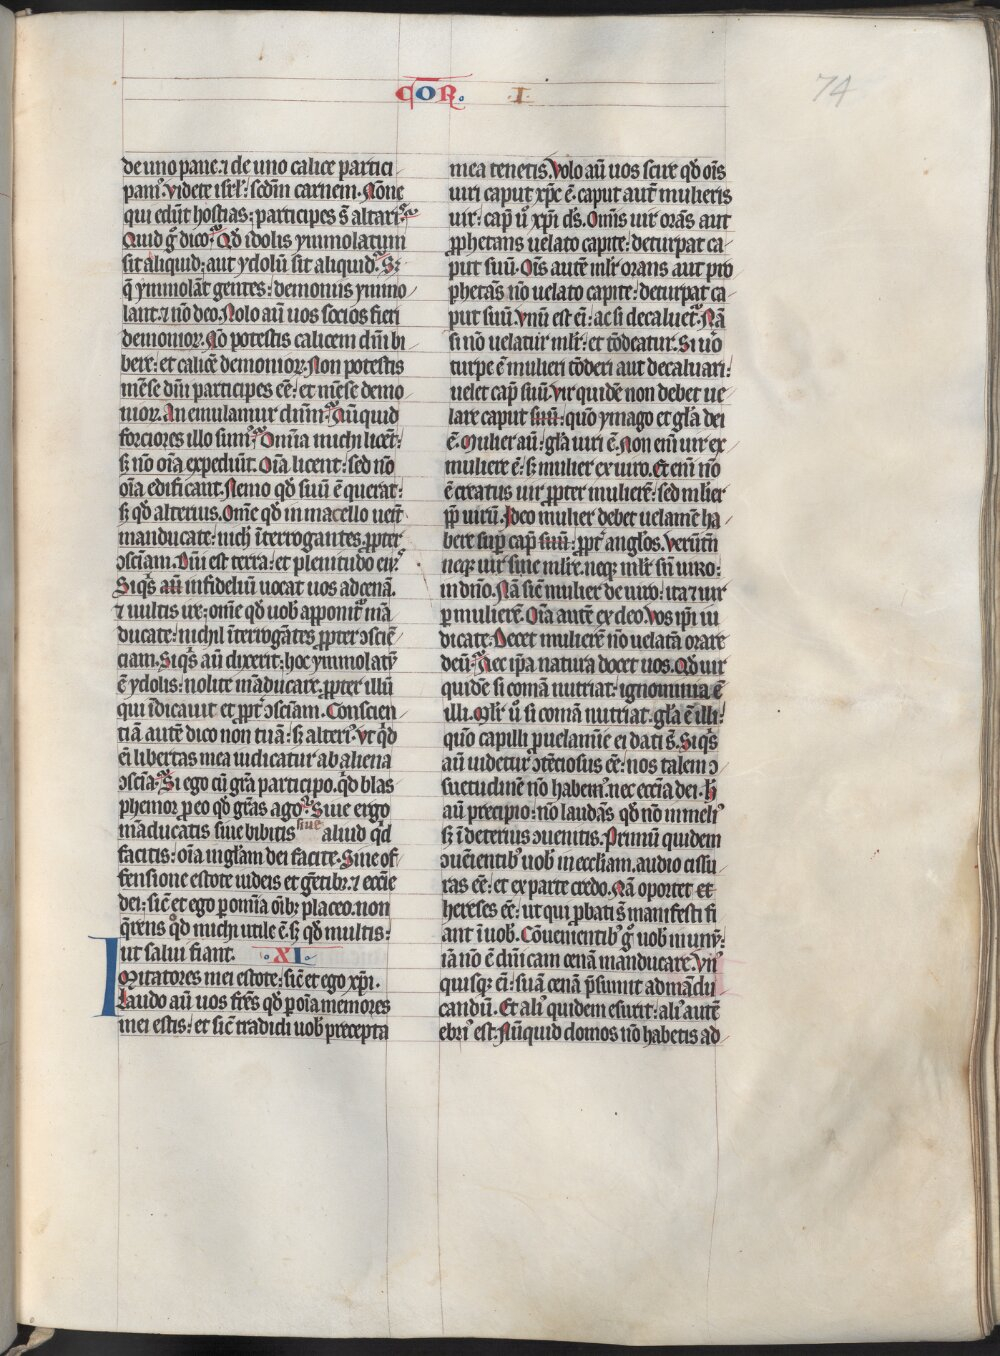 COR. I
74
de uno pane. ⁊ de uno calice partici
pamꝰ. Videte isrl̛: scd̄m carnem. Nōne
qui edūt hostias: participes s̄ altarꝭ?
Quid g̊ dico? Qd̛ idolis ymmolatum
sit aliquid: aut ydolū sit aliquid? Sꝫ
q̄ ymmolāt gentes: demoniis ymmo
lant. ⁊ nō deo. Nolo aū uos socios fieri
demonioꝝ. Nō potestis calicem dn̄i bi
bere: et calicē demonioꝝ. Non potestis
mēse dn̄i participes eē: et mēse demo
nioꝝ. An emulamur dūm? Nūquid
forciores illo sumꝰ? Omīa michi licēt:
sꝫ nō oīa expediūt. Oīa licent: sed nō
oīa edificant. Nemo qd̛ suū ē querat:
sꝫ qd̛ alterius. Om̄e qd̛ in macello uen̄t
manducate: nich̛ īterrogantes. ꝓpter
ↄsciām. Dn̄i est terra: et plenitudo eiꝰ.
Siq̄s aū infideliū uocat uos ad cenā.
⁊ uultis ire: om̄e qd̛ uob̛ apponit̛ mā
ducate: nichil īterrogātes ꝓpter ↄsciē
ciam. Siq̄s aū dixerit: hoc ymmolatū
ē ydolis: nolite māducare. ꝓpter illū
qui īdicauit et ꝓpt̛ ↄsciām. Conscien
tiā autē dico non tuā: sꝫ alteriꝰ. Vt q̊d
ei libertas mea iudicatur ab aliena
ↄsciā? Si ego cū gr̄a participo. q̊d blas
phemor ꝓ eo qd̛ gr̄as ago? Siue ergo
māducatis siue bibitis siue aliud q̊d
facitis: oīa in gl̄am dei facite. Sine of
fensione estote iudeis et gētibꝫ. ⁊ eccl̄ie
dei: sic̄ et ego ꝑ omīa oībꝫ placeo. non
q̄rens q̊d michi utile ē sꝫ qd̛ multis:
ut salui fiant. .XI.
Imitatores mei estote: sic̄ et ego xp̄i.
Laudo aū uos fr̄es qd̛ ꝑ oīa memores
mei estis: et sic̄ tradidi uob̛ precepta
mea tenetis. Volo aū uos scire qd̛ oīs
uiri caput xp̄c ē. caput aut̄ mulieris
uir: cap̛ ů xp̄i ds̄. Om̄is uir orās aut
ꝓphetans uelato capite: deturpat ca
put suū. Oīs autē ml̛r orans aut pro
phetās nō uelato capite: deturpat ca
put suū. Vnū est ei: ac si decaluet̛. Nā
si nō uelatur ml̛r: et tōdeatur. Si uo
turpe ē mulieri tōderi aut decaluari:
uelet cap̛ suū. Vir quidē non debet ue
lare caput suū: quō ymago et gl̄a dei
ē. Mulier aū: gl̄a uiri ē. Non eī uir ex
muliere ē: sꝫ mulier ex uiro. Et enī nō
ē creatus uir ꝓpter mulierē: sed ml̛ier
ꝓp̄ uirū. Ideo mulier debet uelamē ha
bere sup̄ cap̛ suū: ꝓpt̛ anglōs. Verūtn̄
neqꝫ uir sine ml̛re. neqꝫ ml̛r sn̄ uiro:
in dn̄o. Nā sic̄ mulier de uiro: ita ⁊ uir
ꝑ mulierē. Oīa autē ex deo. Vos ip̄i iu
dicate. Decet mulierē nō uelatā orare
deū? Nec ip̄a natura docet uos. Qd̛ uir
quidē si comā nutriat: ignominia ē
illi. Ml̛r ů si comā nutriat: gl̄a ē illi:
quō capilli ꝓ uelamīe ei dati s̄. Siq̄s
aū uidetur ↄtēciosus eē: nos talem ↄ
suetudinē nō habemꝰ. nec eccl̄ia dei. h̛
aū precipio: nō laudās qd̛ nō in meliꝰ
sꝫ ī deterius ↄuenitis. Primū quidem
ↄueientibꝰ uob̛ in eccl̄iam. audio cissu
ras eē: et ex parte credo. Nā oportet et
hereses eē: ut qui ꝓbati s̄ manifesti fi
ant ī uob̛. Cōuenientibꝰ g̊ uob̛ in unū:
iā nō ē dn̄icam cenā manducare. Vnꝰ
quisqꝫ eī: suā cenā p̄sumit ad mādu
candū. Et aliꝰ quidem esurit: aliꝰ autē
ebriꝰ est. Nūquid domos nō habetis ad